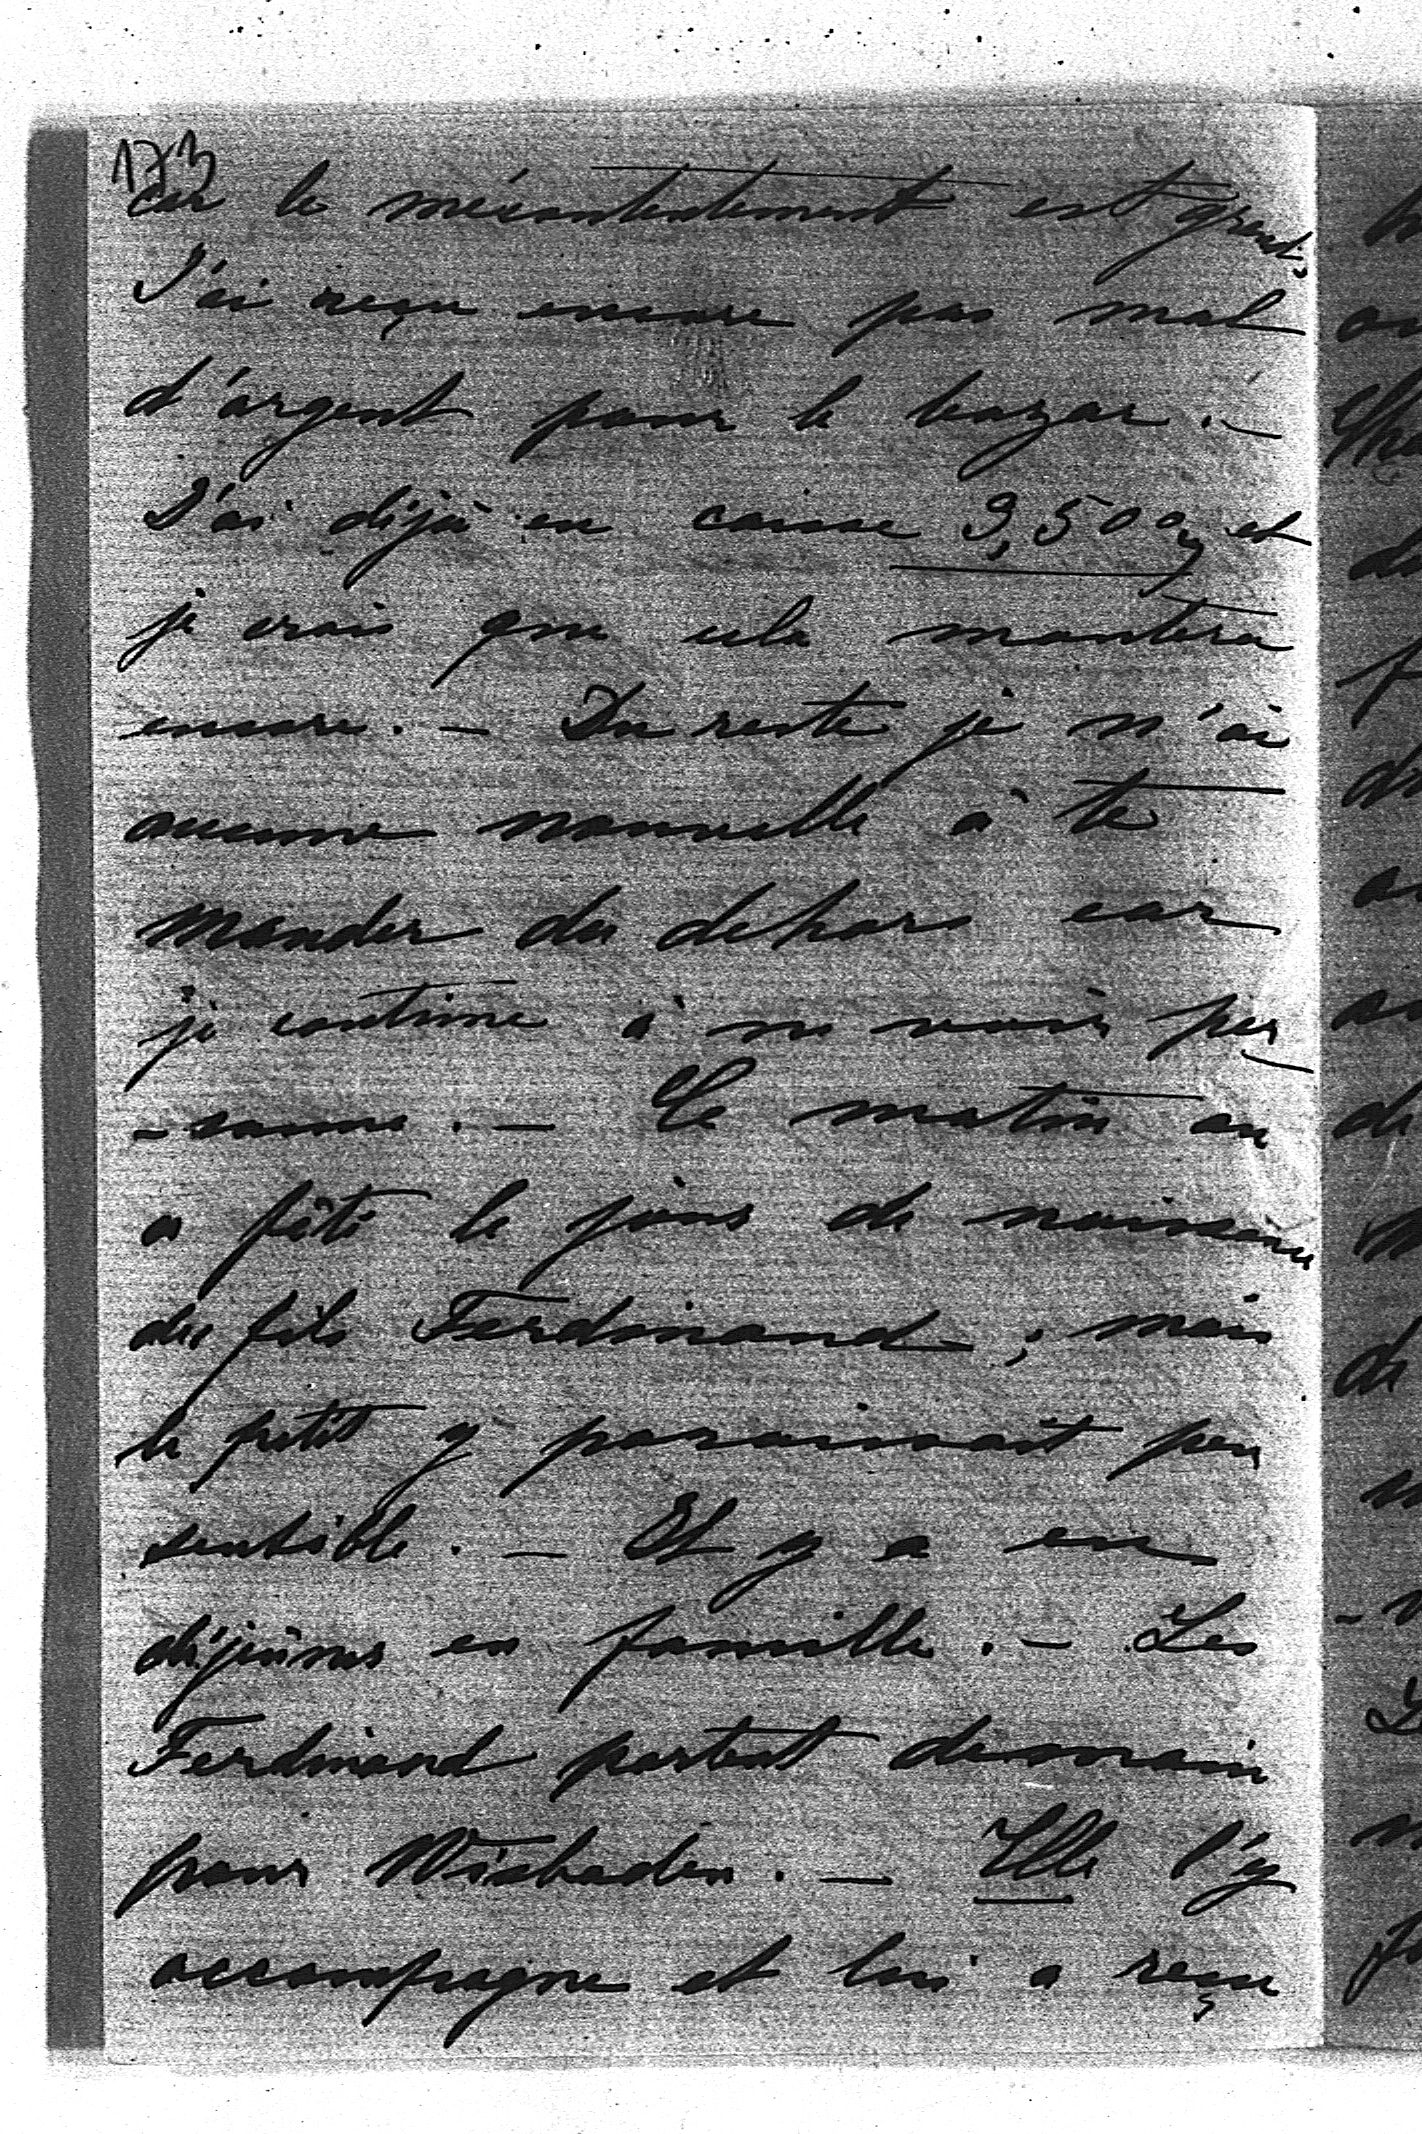 173
car le mécontentement est grand.
J'ai reçu encore pas mal
d'argent pour le bazar. —
J'ai déjà en caisse 3,500, et
je crois que cela montera
encore. — Du reste je n'ai
aucune nouvelle à te
mander du dehors car
je continue à ne voir per
-sonne. — Ce matin on
a fêté le jour de naissance
du fils Ferdinand ; mais
le petit y paraissait peu
sensible. — Et y a eu
déjeûner en famille. — Les
Ferdinand partent demain
pour Wisbaden. — Elle l'y
accompagne et lui a reçu